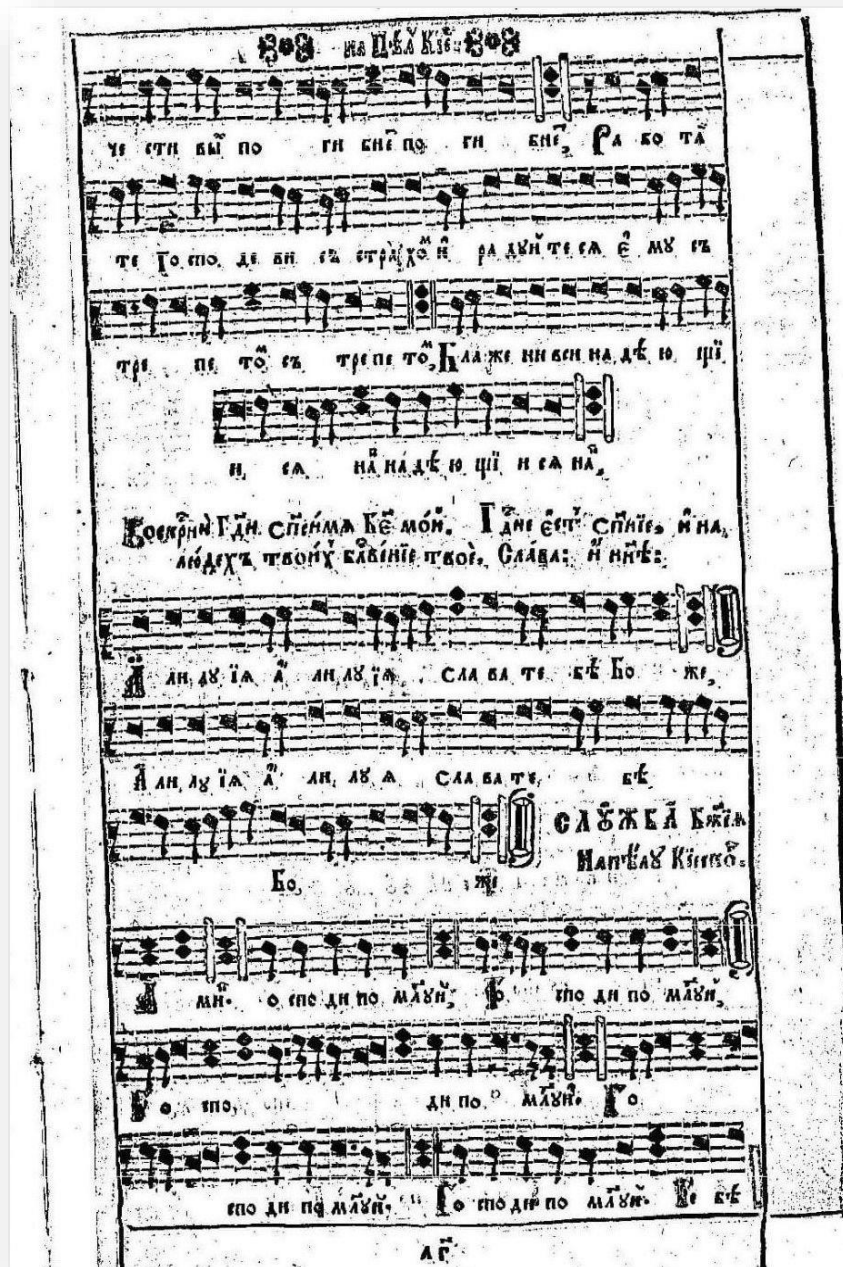 на Цѣл̾ Кїе҃
че сти вы̑ по ги бне̑ по ги бне̑, Ра бо та̑
те Го спо де ви съ стра хо̑ и̑ ра дуй те ся Є̑ му съ
тре пе то̑ съ тре пе то̑, Бла же ни вси на дѣ ю щї
и ся на̑ на дѣ ю щї и ся на̑,
Воскр҃ни Гд҃и сп҃си мя Бж҃е мо́й. Гд҃не є̑ст̾ сп҃нїе, и̑ на
лю́дехъ твои́х̾ бл҃ве́нїе твоѐ, Сла́ва: и̑ нн҃ѣ:
А̑ ли лу їя а̑ ли лу їя сла ва те бѣ Бо же,
А̑ ли лу їя а̑ ли лу я сла ва те бѣ
Бо же
СЛУЖБА Бж҃їѧ
Напѣлу Кїевко̑.
А ми̑. Го спо ди по мл҃уй, Го спо ди по мл҃уй,
Го спо ди по мл҃уй. Го
спо ди по мл҃уй. Го спо ди по мл҃уй. Те бѣ
л҃г